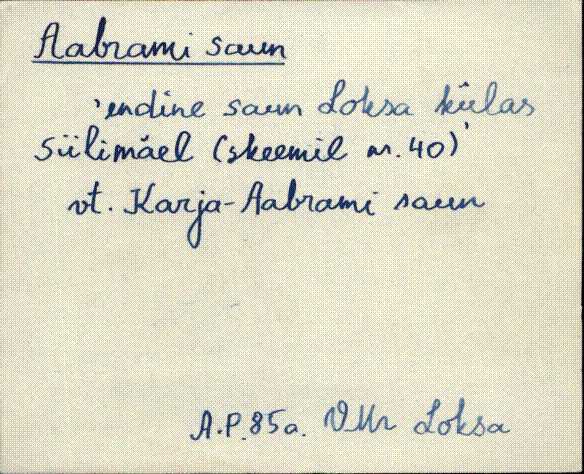 Aabrami saun
'endine saun Loksa külas
Siilimäel (skeemil nr. 40)'
vt. Karja-Aabrami saun
A.P. 85a. VMr Loksa